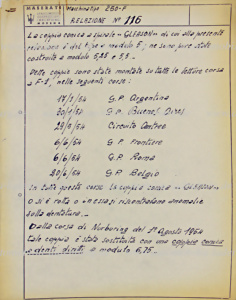 MASERATI
Macchina tipo 250-F
RELAZIONE N° 116
La coppia conica a spirale "GLEASON" di cui alla presente
relazione è del tipo a modulo 5, ne sono pure state
costruite a modulo 5,25 e 5,5.
Dette coppie sono state montate su tutte le vetture corsa
F-2, nelle seguenti corse:
17/1/54 G.P. Argentina
30/1/54 G.P. Buenos Aires
/54 Circuito
6/6/54 G.P. Frontiere
6/6/54 G.P. Roma
20/6/54 G.P. Belgio
In tutte queste corse la coppia conica "GLEASON"
o si è rotta o messa, si riscontrarono anomalie
sulla dentatura.
Dalla corsa di Nurburing del 1° Agosto 1954
tale coppia è stata sostituita con una coppia conica
a denti diritti a modulo 6,75.